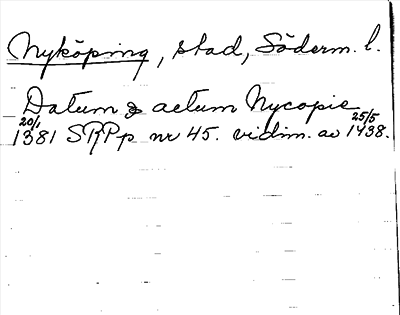 Nyköping, stad, Söderm. l.
Datum & actum Nycopie
20/1 1381 SRPp nr 45. vidim. av 25/5 1438.